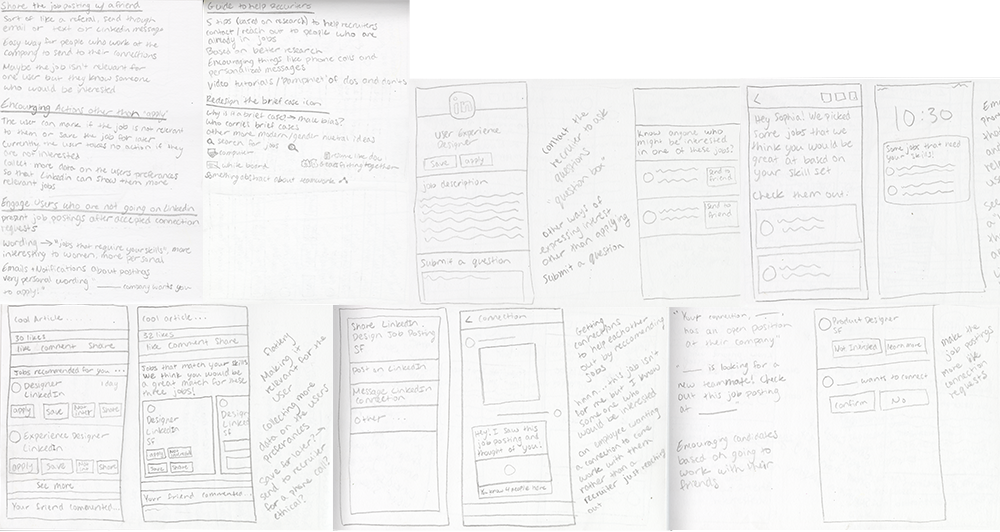 Share the job posting w/ a friend
Sort of like a referal, send through
email or text or LinkedIn message
Easy way for people who work at the
company to send to their connections
Maybe the job isn't relevant for
one user but they know someone
who would be interested
Encouraging Actions other than "apply"
The user can mark if the job is not relevant
to them or save the job for later
currently the user takes no action if they
are not interested
Collect more data on the users preferences
so that LinkedIn can show them more
relevant jobs
Engage users who are not going on LinkedIn
present job postings after accepted connection
requests
Wording → "jobs that require your skills", more
interesting to women, more personal
Emails + Notifications about postings
very personal wording "____ company wants you
to apply!"
Guide to help recruiters
5 tips (based on research) to help recruiters
contact/reach out to people who are
already in jobs
Based on better research
Encouraging things like phone calls and
personalized messages
Video tutorials / "pamphlet" of dos and donts
Redesign the brief case icon
Why is it a brief case → male bias?
Who carries brief cases
other more modern/gender nuetral ideas
search for job
computer
white board
pieces fitting together
something abstract about teamwork
User Experience
Designer
Save
apply
job description
Submit a question
contact the
recruiter to ask
questions
"question box"
other ways of
expressing interest
other than applying
Submit a question
Know anyone who
might be interested
in one of these jobs?
Send to
friend
Send to
friend
Hey Sophia! We picked
some jobs that we
think you would be
great at based on
your skill set
Check them out:
10:30
Some jobs that need
your skills!
Cool Article....
30 likes
like comment Share
Jobs recommended for you...
Designer
LinkedIn
1 day
apply
Save
Not
Interest
Share
Experience Designer
LinkedIn
apply
Save
Share
See more
Your friend commented...
cool article...
32 likes
like Comment Share
Jobs that match your skills
We think you would be
a great match for these
three jobs!
Designer
LinkedIn
SF
apply
Not
Interested
Save
Share
Designer
LinkedIn
SF
Your friend commented...
Flattery
Making it
relevant for the
user
collecting more
data on the users
preferences
save for later? →
send to recruiter
for a phone call?
ethical?
Share LinkedIn
Design Job Posting
SF
post on LinkedIn
Message LinkedIn
connection
Other...
Connection
Hey! I saw this
job posting and
thought of you!
You know 4 people here
Getting
connections
to help each other
out by reccomending
jobs
hmm... this job isn't
for me but I know
someone who
would be interested
an employee wanting
a connection to come
work with them
rather than a
recruiter just reaching
out
"Your connection, ____
has an open position
at their company"
"____ is looking for a
new teammate! Check
out this job posting
at ____"
Encouraging candidates
based on going to
work with their
friends
Product Designer
SF
Not Intrested
learn more
____ wants to connect
Confirm
No
make the
job postings
more like
connection
requests